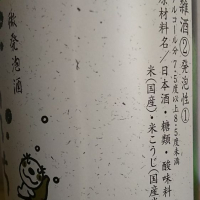 雑酒②発泡性①
アルコール分 7.5度以上8.5度未満
原材料名/日本酒・糖類・酸味料
米(国産)・米こうじ(国産
微発泡酒